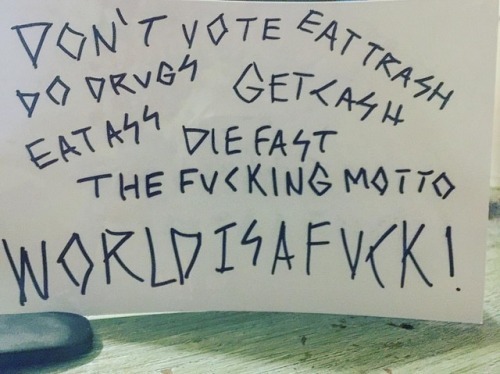 DON'T VOTE EAT TRASH
DO DRUGS GET CASH
EAT ASS DIE FAST
THE FUCKING MOTTO
WORLD IS A FUCK!